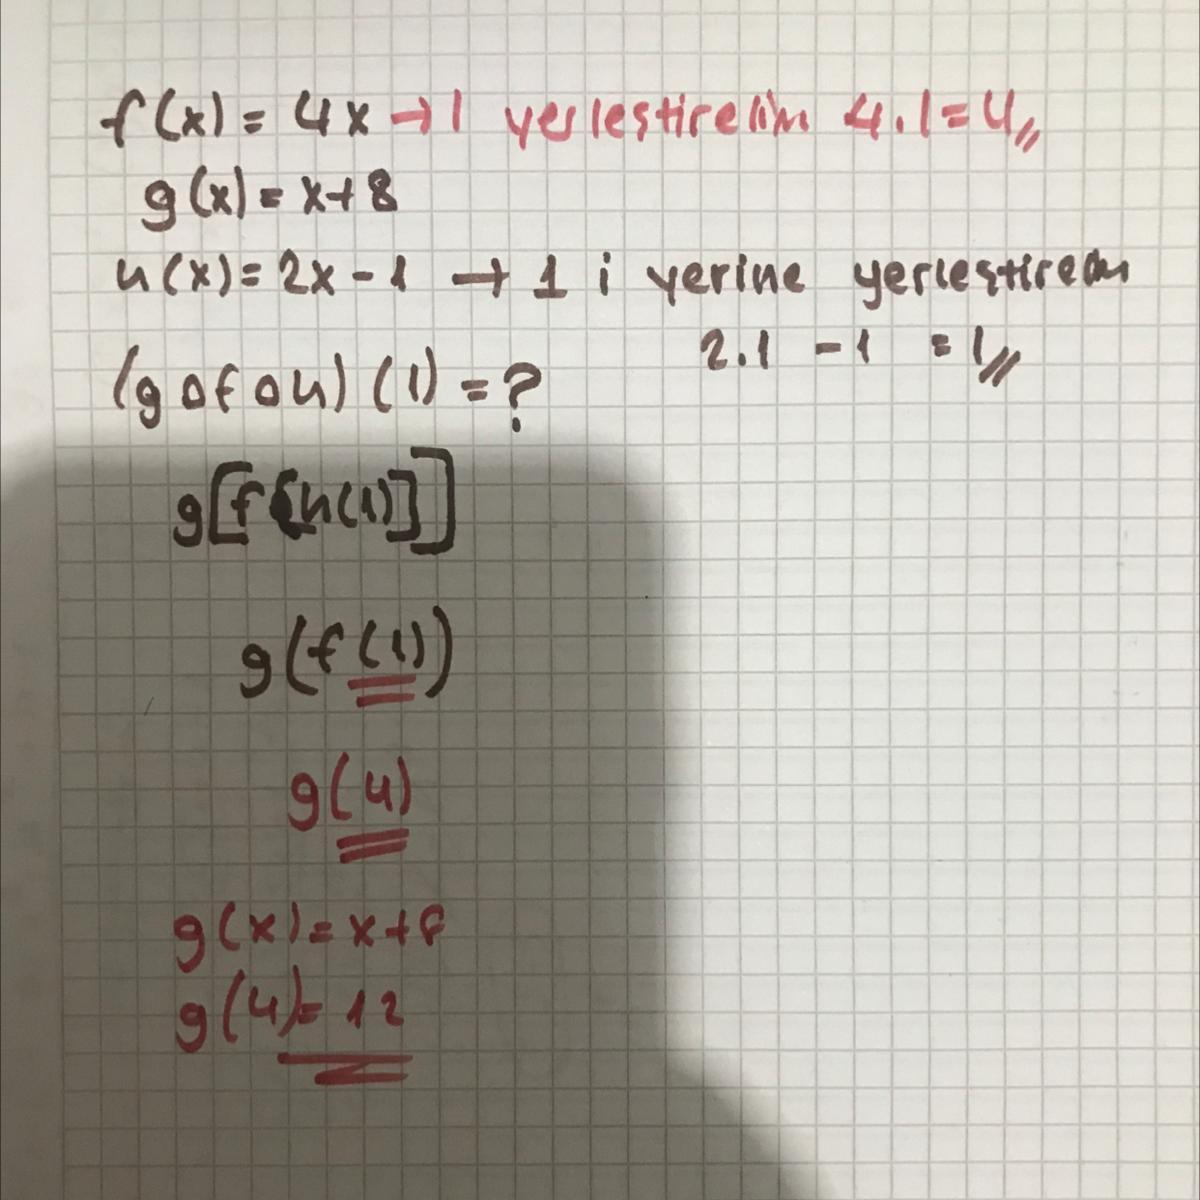 f(x) = 4x → 1 yerlestirelim 4.1 = 4
g(x) = x+8
h(x) = 2x - 1 → 1 i yerine yerlestirelim
2.1 - 1 = 1
(gofoh) (1) = ?
g[f[h(1)]]
g(f(1))
g(4)
g(x) = x+8
g(4) = 12